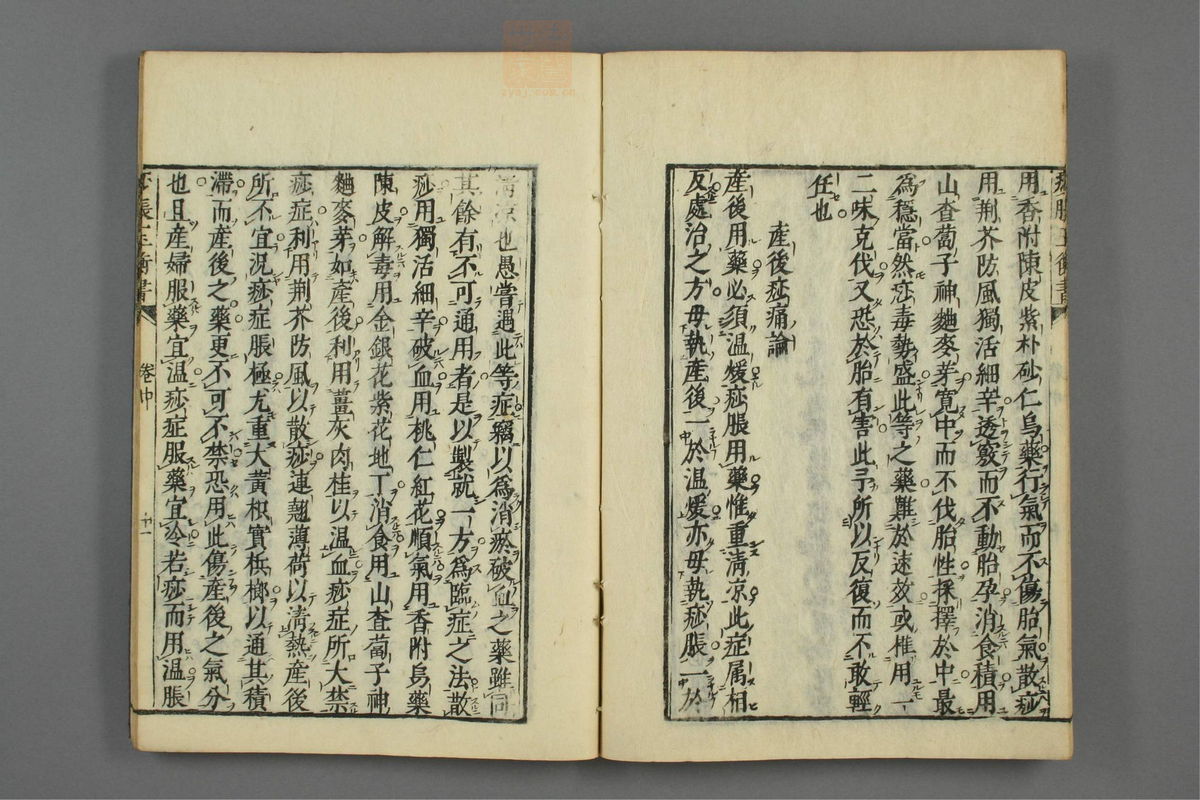 痧脹玉衡書
用香附陳皮紫朴砂仁烏藥行氣而不傷胎氣散痧
用荆芥防風獨活細辛透竅而不動胎孕消食積用
山查蔔子神麯麥芽寛中而不伐胎性採擇於中最
為穩當然痧毒勢盛此等之藥難於速效或稚用一
二味克伐又恐於胎有害此予所以反復而不敢輕
任也
產後痧痛論
產後用藥必須温煖痧脹用藥惟重清凉此症属相
反處治之方毋執產後一於温煖亦毋執痧脹一於
清凉也愚嘗遇此等症竊以為消瘀破血之藥雖同
其餘有不可通用者是以製就一方為臨症之法散
痧用獨活細辛破血用桃仁紅花順氣用香附烏藥
陳皮解毒用金銀花紫花地丁消食用山查蔔子神
麯麥芽如產後利用薑灰肉桂以温血痧症所大禁
痧症利用荆芥防風以散痧連翹薄荷以清熱產後
所不宜況痧症脹極尤重大黄枳實梹榔以通其積
滯而產後之藥更不可不禁恐用此傷產後之氣分
也且產婦服藥宜温痧症服藥宜冷若痧而用温脹
痧脹玉衡書
卷中
十一
zysj.com.cn